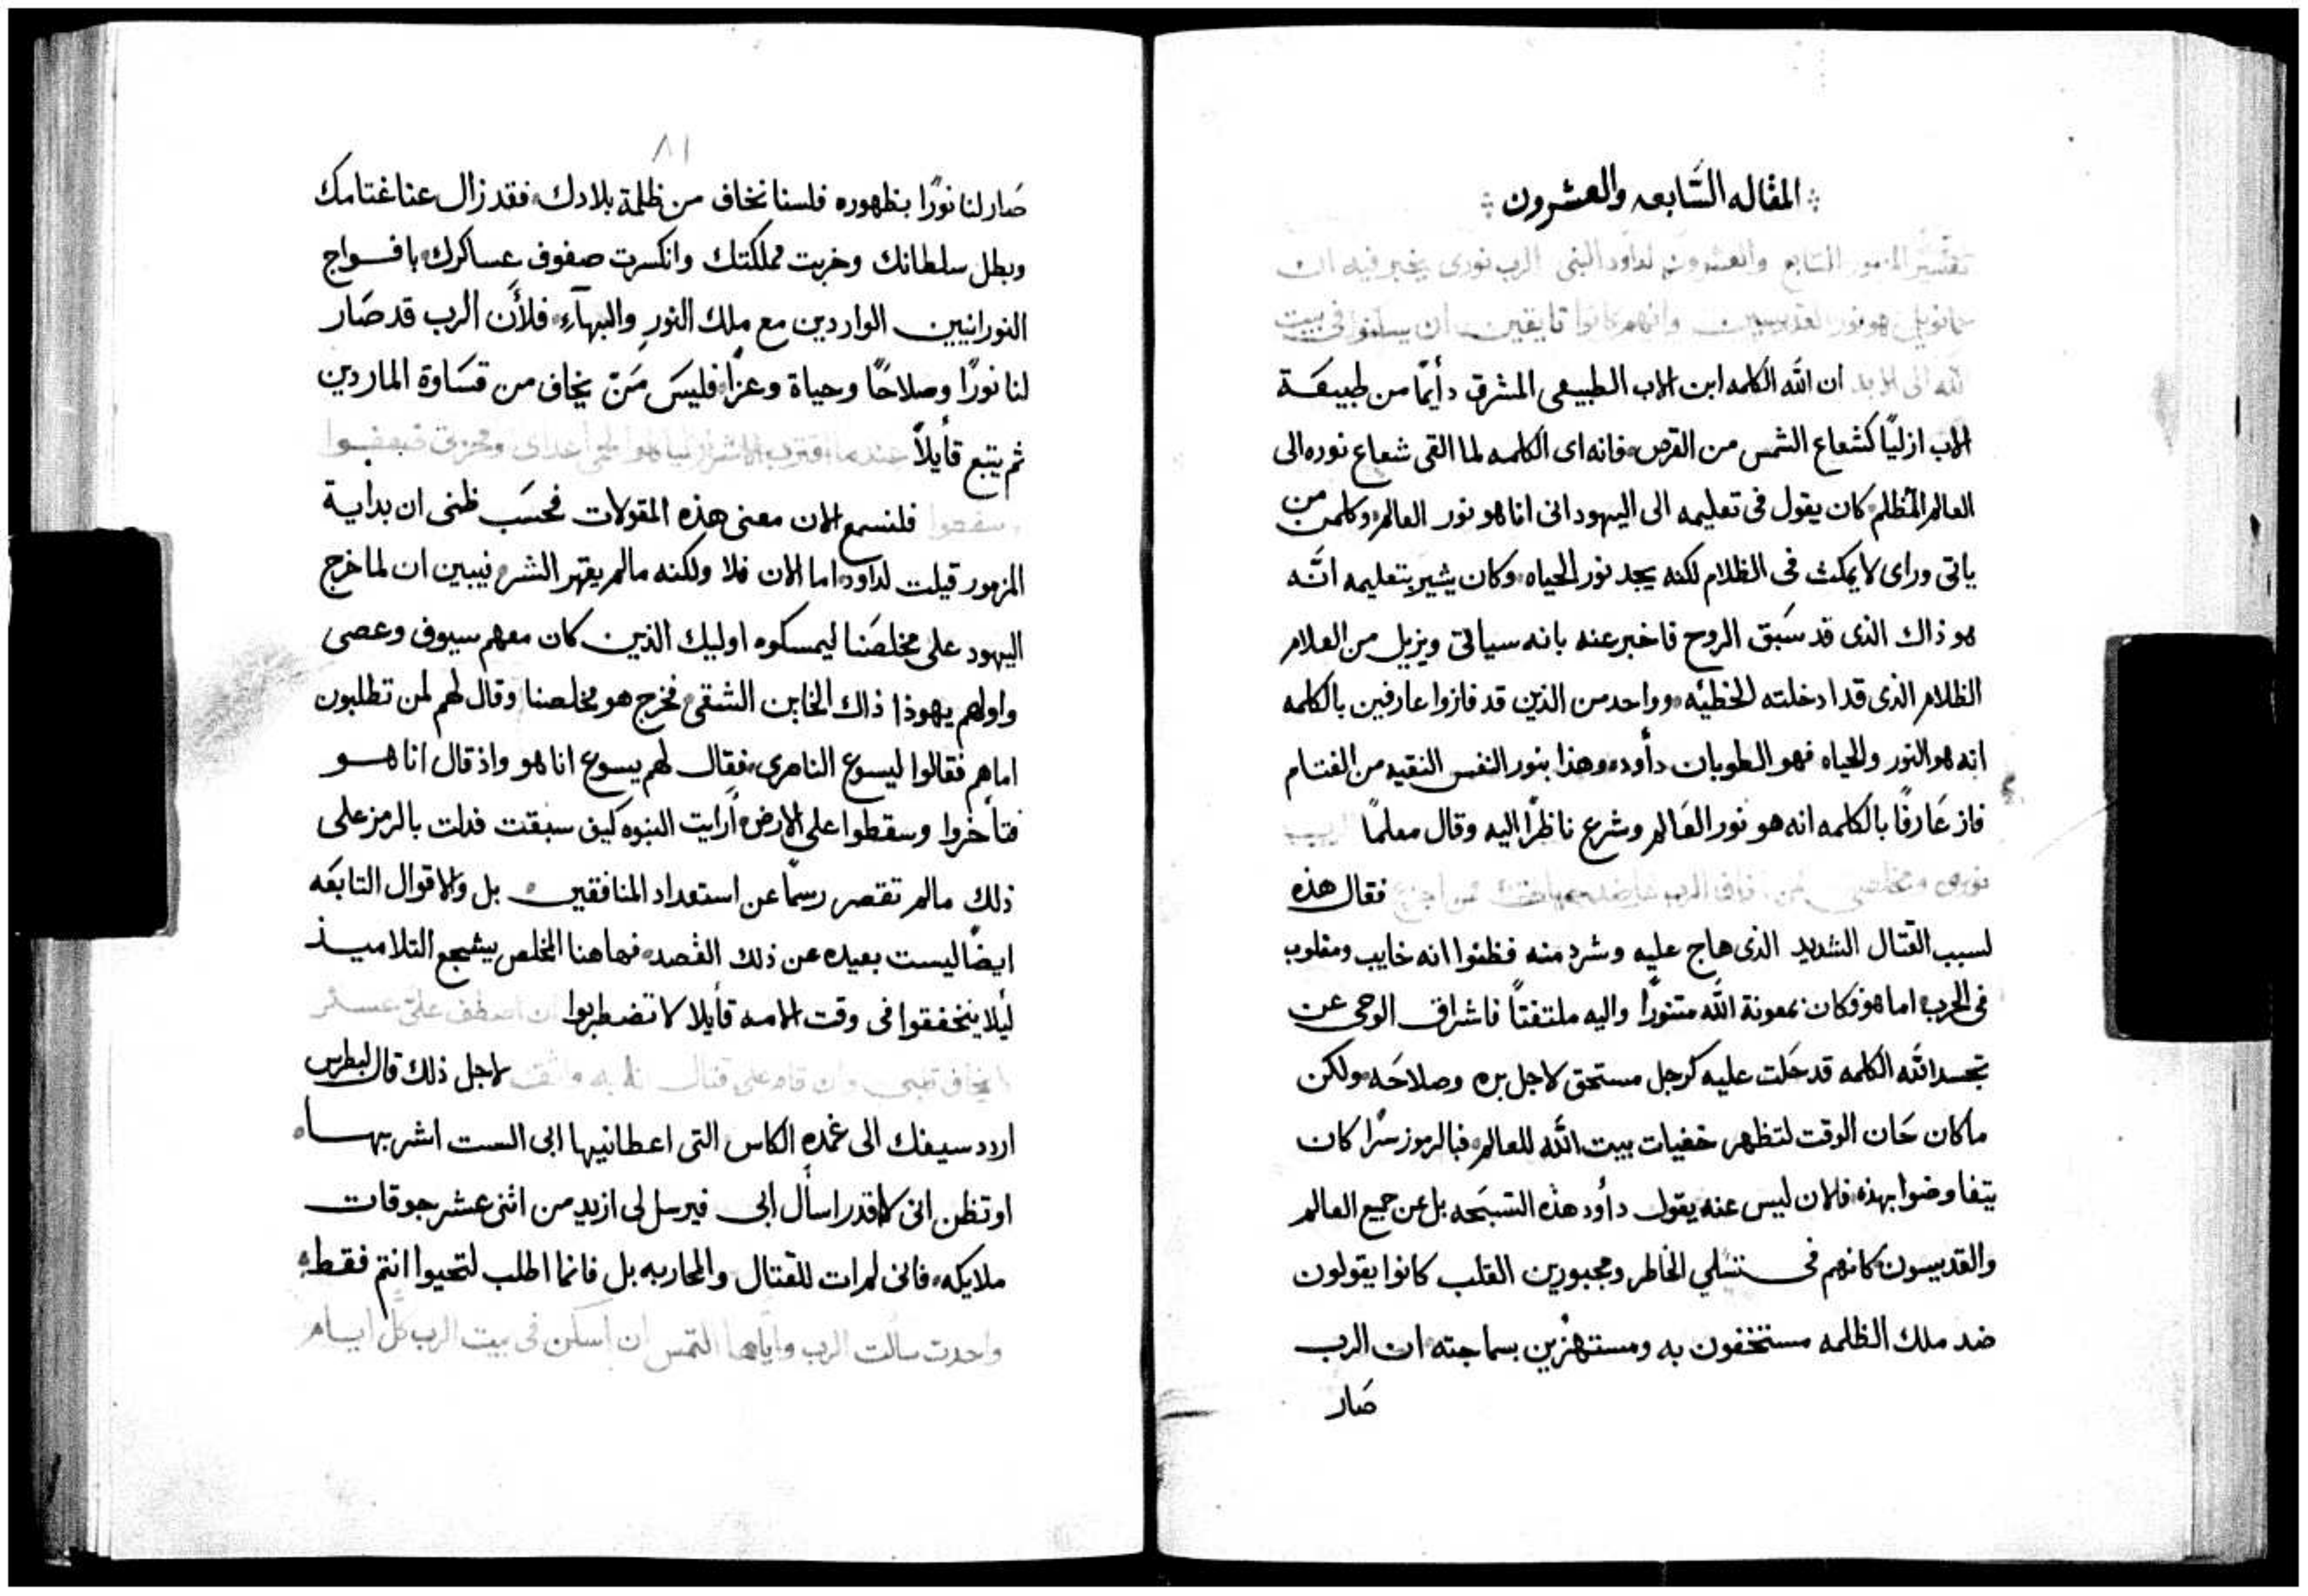 المقاله السَّابعه والعشرون
تفسير المزمور السابع والعشرون لداود النبى الرب نورى يخبر فيه ان
عمانويل هو نور القديسين وانهم كانوا تايقين ان يسكنوا فى بيت
الله الى الابد ان الله الكلمه ابن الاب الطبيعى المشرق دأيمًا من طبيعَة
الاب ازليًا كشعاع الشمس من القرص فانه اى الكلمه لما القى شعاع نوره الى
العالم المظلم كان يقول فى تعليمه الى اليهود انى انا هو نور العالم وكلمن من
ياتى وراى لا يمكث فى الظلام لكنه يجد نور الحياه وكان يشير بتعليمه انَّه
هو ذاك الذى قد سَبق الروح فاخبر عنه بانه سياتى ويزيل من العلام
الظلام الذى قد ادخلته الخطيّه وواحد من الذين قد فازوا عارفين بالكلمه
انه هو النور والحياه فهو الطوبان دأود وهذا بنور النفس النقيه من الغتام
فاز عَارفًا بالكلمه انه هو نور العَالم وشرع ناظرًا اليه وقال معلمًا الرب
نورى ومخلصى ممن اخاف الرب عاضد حياتى ممن اجزع فقال هذه
لسبب القتال الشديد الذى هاج عليه وشرد منه فظنوا انه خايب ومغلوب
فى الحرب اما هو فكان بمعونة الله متنورًا واليه ملتفتًا فاشراق الوحى عن
تجسد الله الكلمه قد حَلت عليه كرجل مستحق لاجل بره وصلاحَه ولكن
ما كان حَان الوقت لتظهر خفيات بيت الله للعالم فبالرموز سرًا كان
يتفاوضوا بهذه فلان ليس عنه يقول دأود هذه التسبَحه بل عن جميع العالم
والقديسون كانهم فى الخاطر ومجبورين القلب كانوا يقولون
ضد ملك الظلمه مستخفون به ومستهزين بسماجته ان الرب
صَار
٨١
صَار لنا نورًا بظهوره فلسنا نخاف من ظلمة بلادك فقد زال عنا غتامك
وبطل سلطانك وخربت مملكتك وانكسرت صفوف عساكرك بافواج
النورانيين الواردين مع ملك النور والبهآءِ فلأَن الرب قد صَار
لنا نورًا وصلاحًا وحياة وعزًا فليسَ مَنّ يخاف من قسَاوة الماردين
ثم يتبع قأيلاً عندما اقترب الاشرار ليأكلوا لحمى اعداى ومحزنى ضعفوا
وسقطوا فلنسمع الان معنى هذه المقولات فحسَب ظنى ان بدأية
المزمور قيلت لداود اما الان فلا ولكنه ما لم يقهر الشر فيبين ان لما خرج
اليهود على مخلصَنا ليمسكوه اوليك الذين كان معهم سيوف وعصى
واولهم يهوذا ذاك الخاين الشقى فخرج هو مخلصنا وقال لهم لمن تطلبون
اماهم فقالوا ليسوع الناصرى فقال لهم يسوع انا هو واذ قال انا هو
فتأخروا وسقطوا على الارض أرايت النبوه كيف سبقت فدلت بالرمز على
ذلك ما لم تقتصر رسمًا عن استعداد المنافقين بل والاقوال التابعَه
ايضًا ليست بعيده عن ذلك القصد فها هنا المخلص يشجع التلاميذ
لئلا يتخفقوا فى وقت الامه قأيلا لا تضطربوا ان اصطف علىّ عسكر
لا يخاف قلبى وان قام على قتال فانا به واثق لاجل ذلك قال لبطرس
اردد سيفك الى غمده الكاس التى اعطانيها ابى الست اشربها
او تظن انى لا اقدر اسأل ابى فيرسل لى ازيد من اثنى عشر جوقات
ملايكه فانى لم ات للقتال والمحاربه بل فانما اطلب لتحيوا انتم فقط
واحدة سالت الرب واياها التمس ان اسكن فى بيت الرب كل ايام